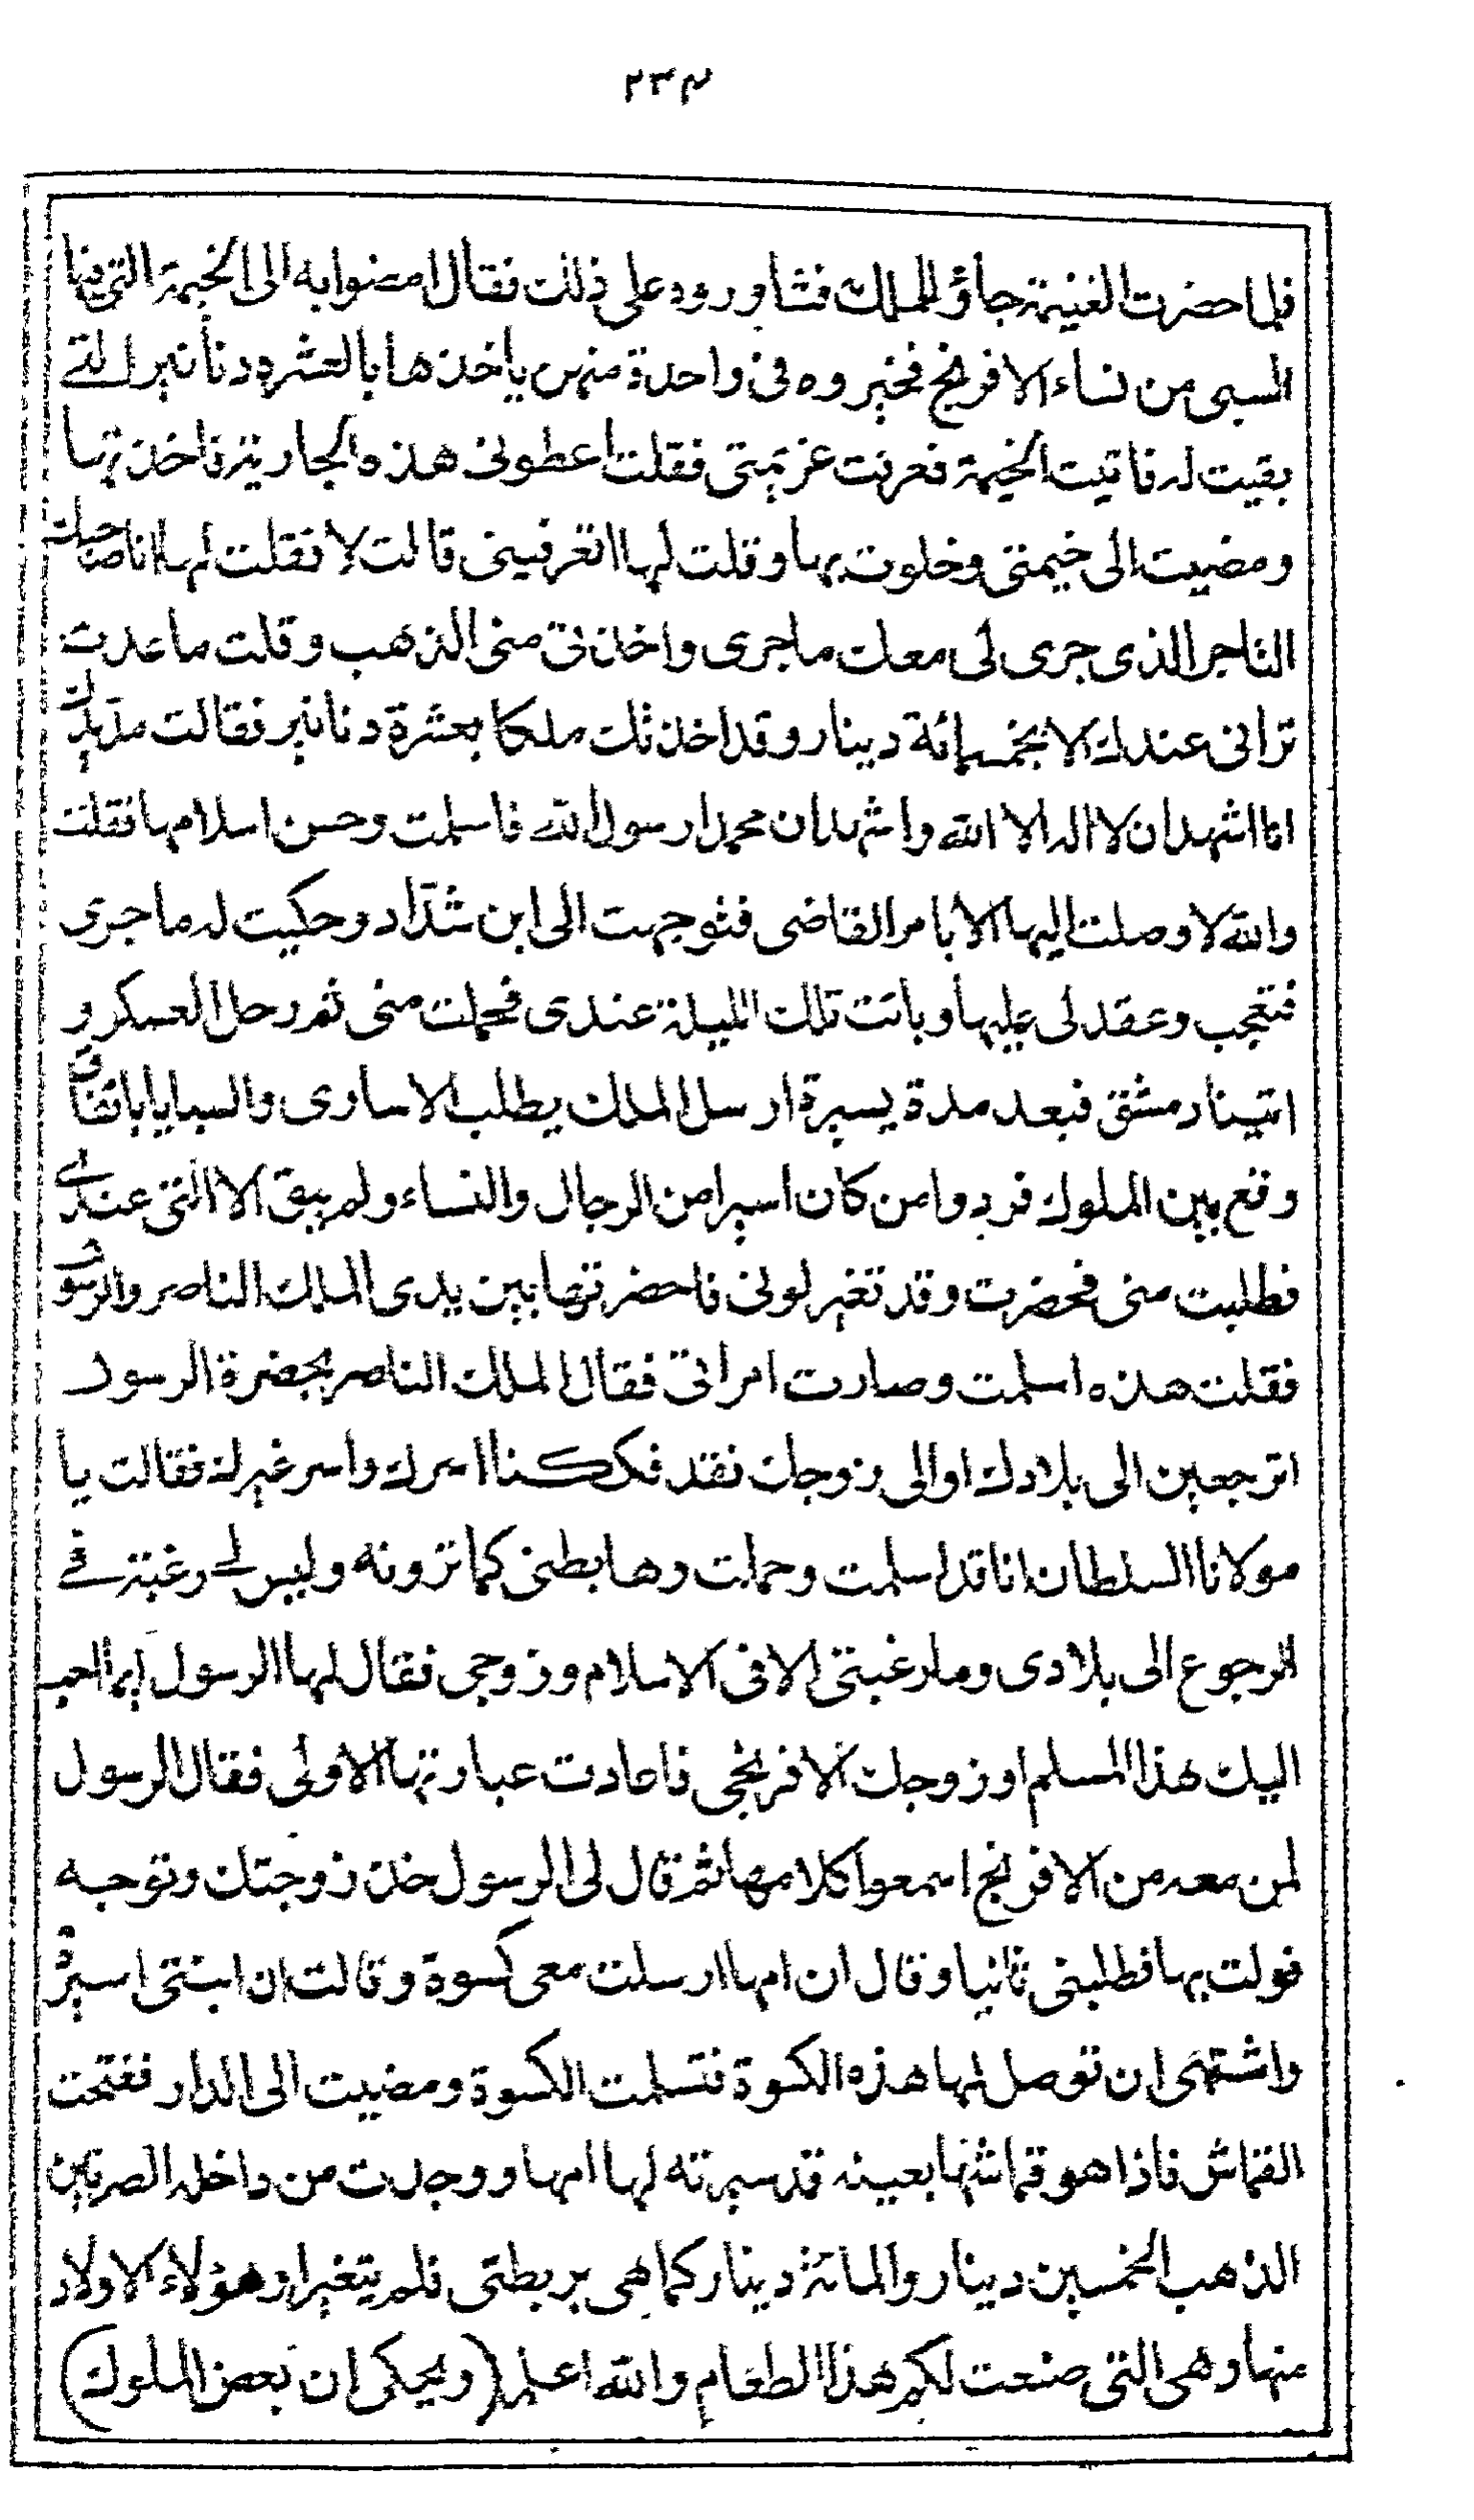 ٢٣٤
فلما حضرت الغنيمة جاؤ للملك فشاوروه على ذلك فقال امضوا به الى الخيمة التى فيها
السبى من نساء الافرنج فخيروه فى واحدة منهن ياخذها بالعشره دنانير التے
بقيت له فاتيت الخيمة فعرفت غريمتى فقلت اعطونى هذه الجارية فاخذتها
ومضيت الى خيمتى وخلوت بها وقلت لها اتعرفينى قالت لا فقلت لها انا صاحبك
التاجر الذى جرى لى معك ماجرى واخذتى منى الذهب وقلت ماعدت
ترانى عندك الا بخمسمائة دينار وقد اخذتك ملكا بعشرة دنانير فقالت مد يدك
انا اشهد ان لا اله الا الله واشهد ان محمدا رسول الله فاسلمت وحسن اسلامها فقلت
والله لا وصلت اليها الا بامر القاضى فتوجهت الى ابن شدّاد وحكيت له ماجرى
فتعجب وعقد لى عليها وباتت تلك الليلة عندى فحملت منى ثم رحل العسكر و
اتينا دمشق فبعد مدة يسيرة ارسل الملك يطلب الاسارى والسبايا باتفاق
وقع بين الملوك فردوا من كان اسيرا من الرجال والنساء ولم يبق الا التى عندى
فطلبت منى فحضرت وقد تغير لونى فاحضرتها بين يدى الملك الناصر والرسول
فقلت هذه اسلمت وصارت امراتى فقال الملك الناصر بحضرة الرسول
اترجعين الى بلادك او الى زوجك فقد فككنا اسرك واسر غيرك فقالت يا
مولانا السلطان انا قد اسلمت وحملت وها بطنى كما ترونه وليس لى رغبة فے
الرجوع الى بلادى وما رغبتى الا فى الاسلام وزوجى فقال لها الرسول ايما احب
اليك هذا المسلم او زوجك الافرنجى فاعادت عبارتها الاولى فقال الرسول
لمن معه من الافرنج اسمعوا كلامها ثم قال لى الرسول خذ زوجتك وتوجه
فولت بها فطلبنى ثانيا وقال ان امها ارسلت معى كسوة وقالت ان ابنتى اسيرة
واشتهى ان توصل لها هذه الكسوة فتسلمت الكسوة ومضيت الى الدار ففتحت
القماش فاذا هو قماشها بعينه قد سيرته لها امها ووجدت من داخله الصرتين
الذهب الخمسين دينار والمائة دينار كما هى بربطتى فلم يتغيرا وهؤلاء الاولاد
منها وهى التى صنعت لكم هذا الطعام والله اعلم (ويحكى ان بعض الملوك)